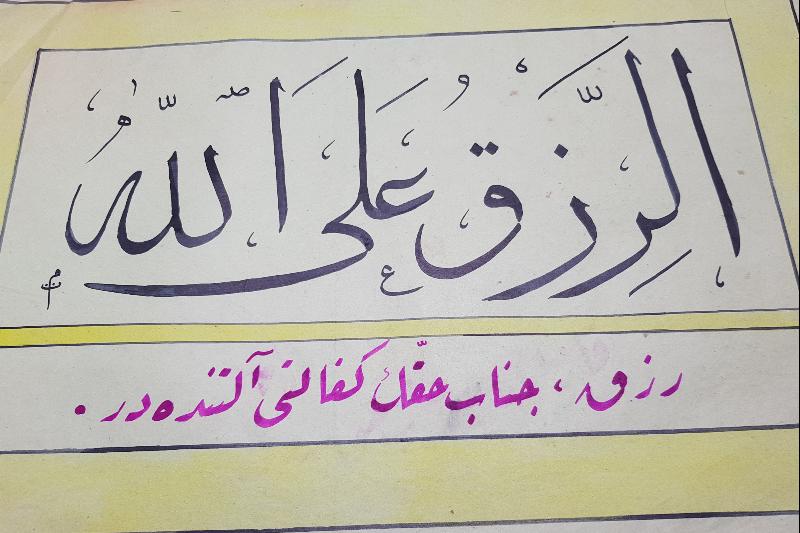 الرِّزْقُ عَلَى اللّٰهُ
رزق ، جناب حقّك كفالتى آلتنده در .